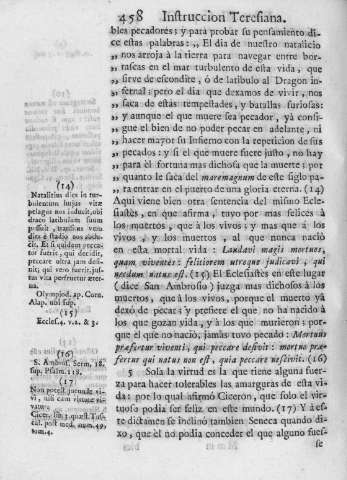 458 Instruccion Teresiana.
bles pecadores: y para probar su pensamiento di-
ce estas palabras: ,, El dia de nuestro natalicio
,, nos arroja à la tierra para navegar entre bor-
,, rascas en el mar turbulento de esta vida, que
,, sirve de escondite, ò de latibulo al Dragon in-
,, fernal: pero el dia que dexamos de vivir, nos
,, saca de estas tempestades, y batallas furiosas:
,, y aunque el que muere sea pecador, yà consi-
,, gue el bien de no poder pecar en adelante, ni
,, hacer mayor su Infierno con la repeticion de sus
,, pecados: y si el que muere fuere justo, no hay
,, para èl fortuna mas dichosa que la muerte: por
,, quanto le saca del maremagnum de este siglo pa-
,, ra entrar en el puerto de una gloria eterna. (14)
Aqui viene bien otra sentencia del mismo Ecle-
siastès, en que afirma, tuvo por mas felices à
los muertos, que à los vivos; y mas que à los
vivos, y los muertos, al que nunca naciò
en esta mortal vida: Laudavi magis mortuos,
quam viventes: feliciorem utroque judicavi, qui
necdum natus est. (15) El Eclesiastès en este lugar
(dice San Ambrosio) juzga mas dichosos à los
muertos, que à los vivos, porque el muerto yà
dexò de pecar; y prefiere el que no ha nacido à
los que gozan vida, y à los que murieron: por-
que el no nacido, jamàs tuvo pecado: Mortuus
præfertur viventi, quia peccare desivit: mortuo præ-
fertur qui natus non est, quia peccare nescivit. (16)
5 Sola la virtud es la que tiene alguna fuer-
za para hacer tolerables las amarguras de esta vi-
da: por lo qual afirmò Ciceròn, que solo el vir-
tuoso podia ser feliz en este mundo. (17) Y à es-
te dictamen se inclinò tambien Seneca quando di-
xo, que èl no podia conceder el que alguno fues-
se
(14)
Natalitius dies in tur-
bulentum hujus vitæ
pelagus nos inducit, ubi
draco latibulum suum
posuit, transitus ven
dita è stadio nos abdu-
cit. Et si quidem pecca-
tor fuerit, qui decidit,
peccare ultra jam desi-
nit, qui vero fuerit, jus-
tus vita perfruetur æter-
na.
Olympiod. ap. Corn.
Alap. ubi sup.
(15)
Eccles. 4. v. 2. & 3.
(16)
S. Ambros. Serm. 18.
sup. Psalm. 118.
(17
Non potest jucundè vi-
vi, nisi cum virtute vi-
vatur.
Cicer. lib. 3. quæst. Tus-
cul. post med. num. 49.
tom. 4.